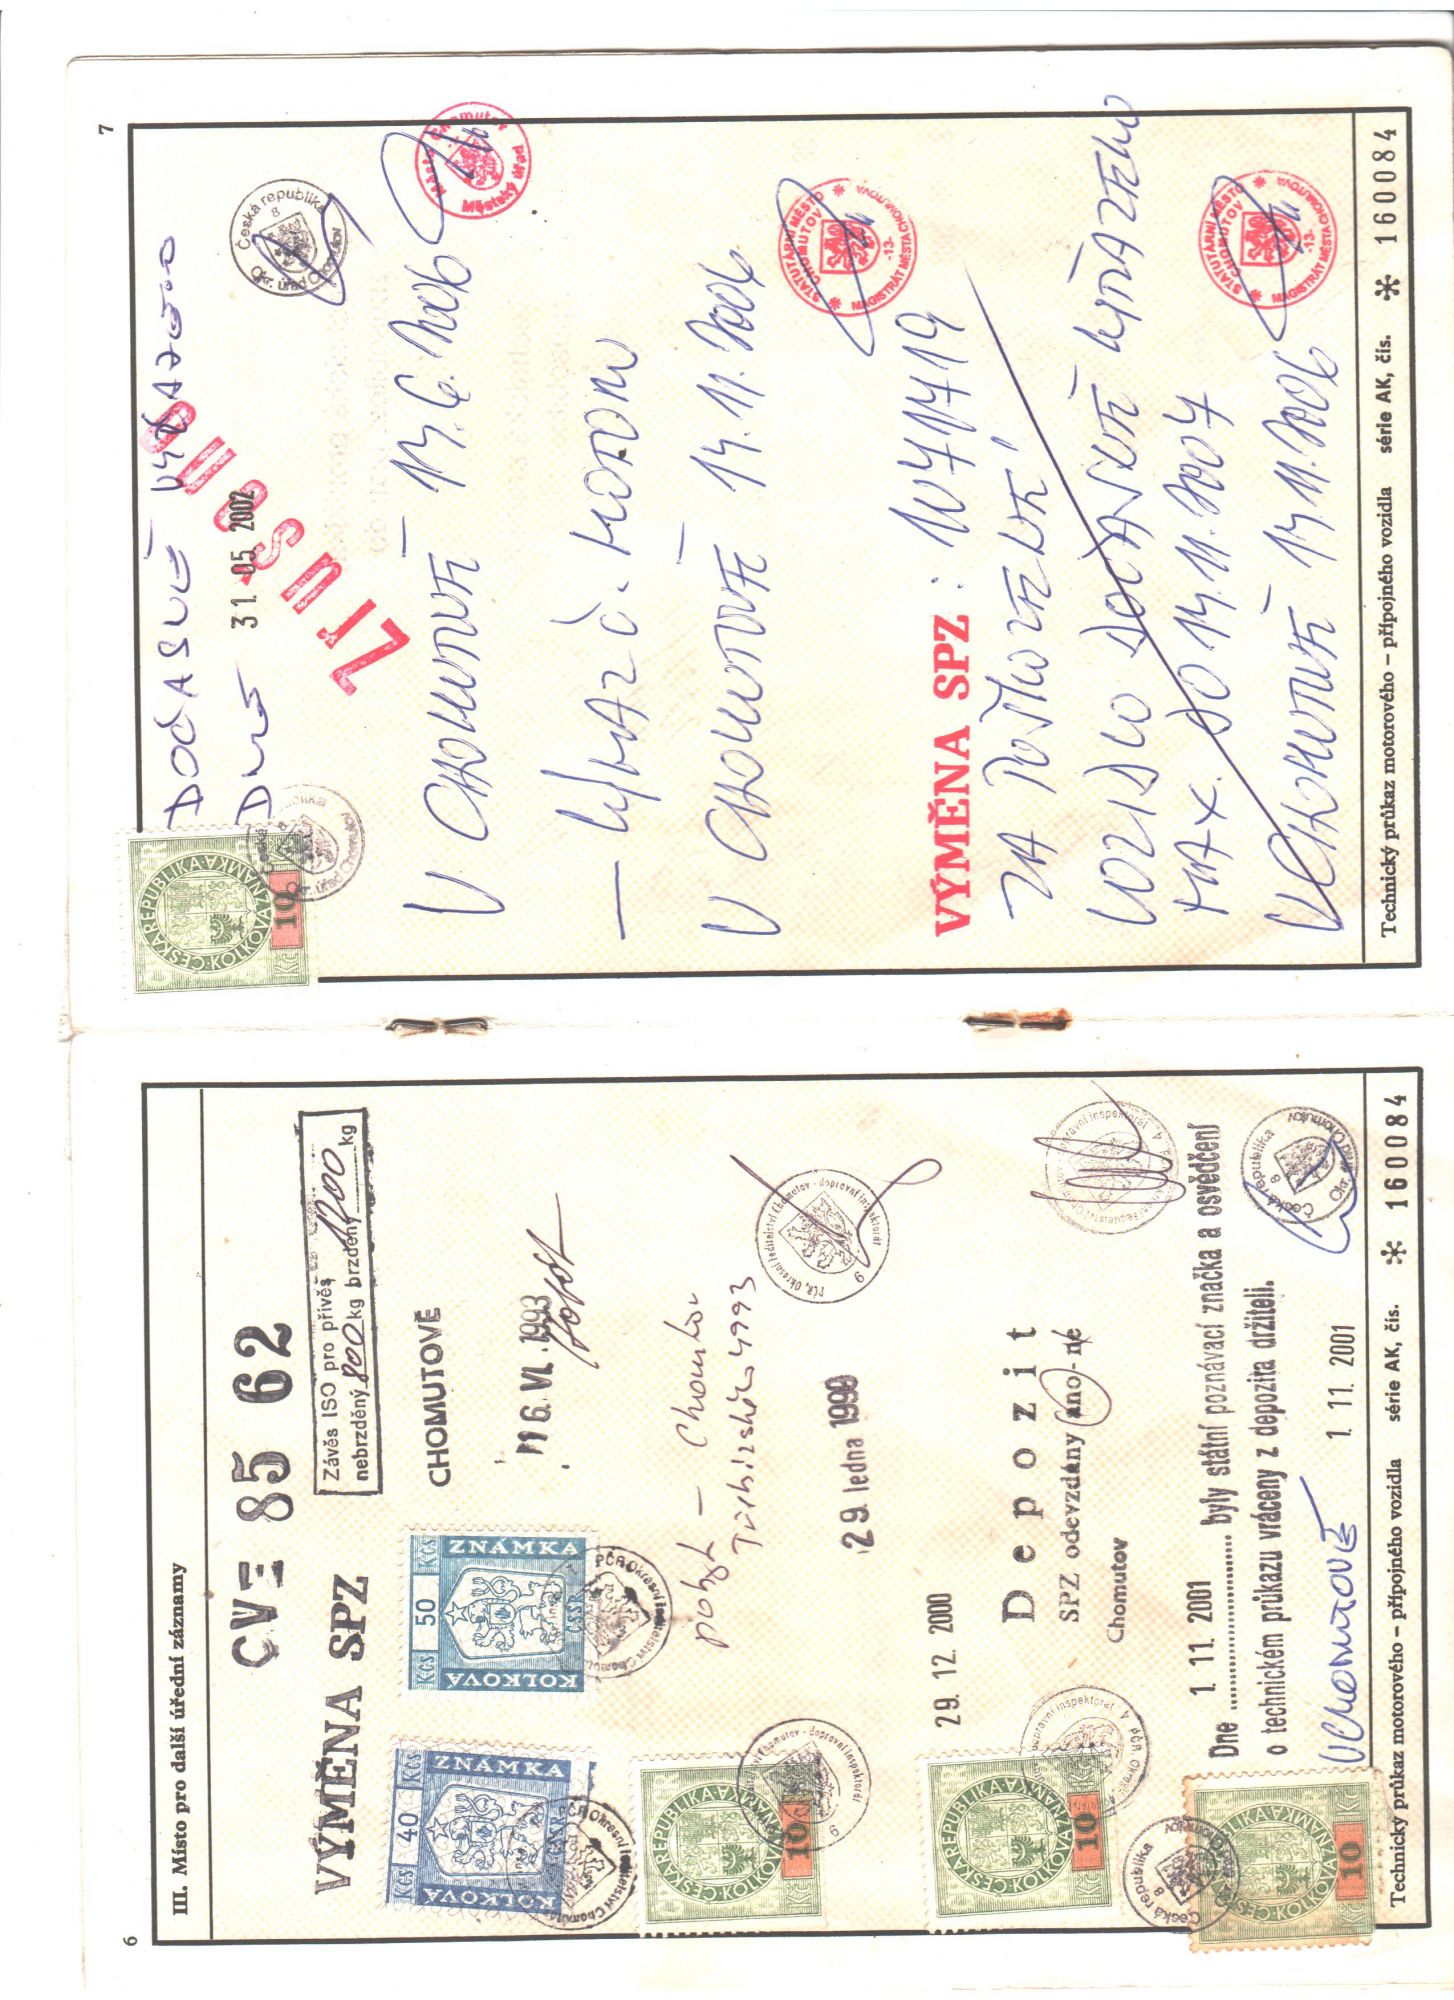 6
III. Místo pro další úřední záznamy
CV 85 62
VÝMĚNA SPZ
Závěs ISO pro přívěs
nebrzděný 800 kg brzděný 1200 kg
KčS 40 KčS
ZNÁMKA
KOLKOVÁ
ČSSR
KčS 50 KčS
ZNÁMKA
KOLKOVÁ
ČSSR
CHOMUTOVĚ
16. VI. 1993
pobyt - Chomutov
4993
PČR, Okresní ředitelství Chomutov - dopravní inspektorát
9
29. ledna 1999
ČESKÁ REPUBLIKA
KOLKOVÁ ZNÁMKA
10
29. 12. 2000
Depozit
SPZ odevzdány ano - ne
Chomutov
ČESKÁ REPUBLIKA
KOLKOVÁ ZNÁMKA
10
Dne 1. 11. 2001 byly státní poznávací značka a osvědčení
o technickém průkazu vráceny z depozita držiteli.
V CHOMUTOVĚ 1. 11. 2001
Česká republika
8
ČESKÁ REPUBLIKA
KOLKOVÁ ZNÁMKA
10 Kč
Technický průkaz motorového – přípojného vozidla série AK, čís. ✻ 160084
7
ČESKÁ REPUBLIKA
KOLKOVÁ ZNÁMKA
Kč 10
DOČASNÉ VYŘAZENO
DNE 31. 05. 2002
Česká republika
8
Okr. úřad Chomutov
ZRUŠENO
V CHOMUTOVĚ 14.6.2006
Město Chomutov
Městský úřad
V CHOMUTOVĚ 14.11.2006
STATUTÁRNÍ MĚSTO
CHOMUTOV
-13-
MAGISTRÁT MĚSTA CHOMUTOVA
VÝMĚNA SPZ: 1U71719
VOZIDLO DOČASNĚ VYŘAZENO
MAX. DO 14.11.2007
V CHOMUTOVĚ 14.11.2006
STATUTÁRNÍ MĚSTO
CHOMUTOV
-13-
MAGISTRÁT MĚSTA CHOMUTOVA
Technický průkaz motorového – přípojného vozidla série AK, čís. ✻ 160084